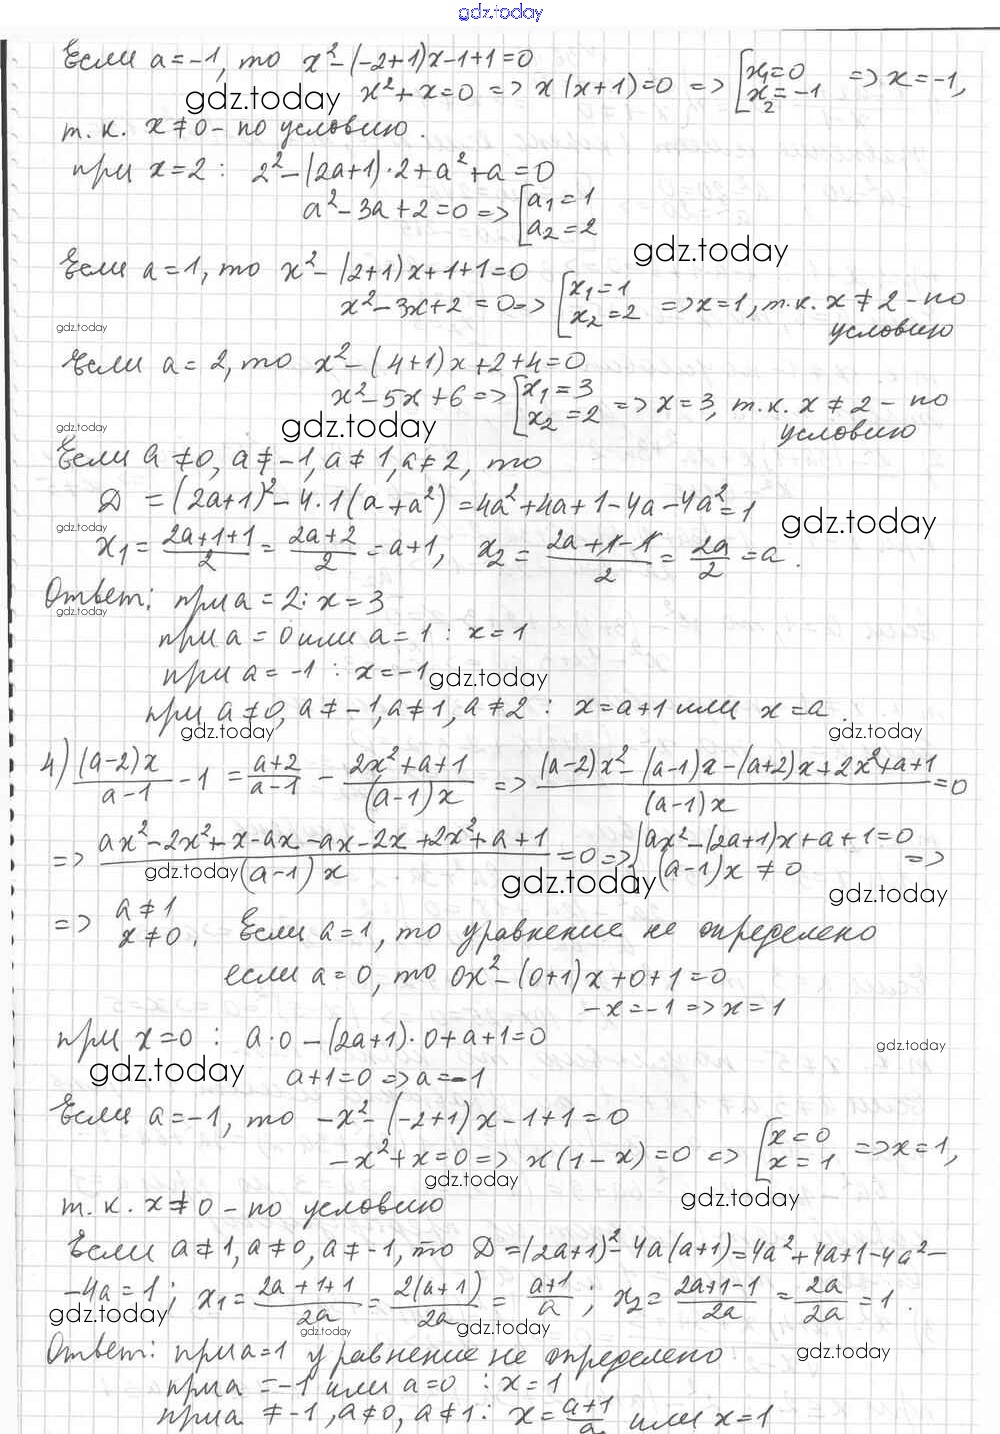 gdz.today
Если a = -1, то x² - (-2+1)x - 1 + 1 = 0
gdz.today x² + x = 0 => x(x+1) = 0 => [x₁ = 0 x₂ = -1 => x = -1,
т.к. x ≠ 0 - по условию.
при x = 2 : 2² - (2a+1)·2 + a² + a = 0
a² - 3a + 2 = 0 => [a₁ = 1 a₂ = 2
gdz.today
Если a = 1, то x² - (2+1)x + 1 + 1 = 0
x² - 3x + 2 = 0 => [x₁ = 1 x₂ = 2 => x = 1, т.к. x ≠ 2 - по
gdz.today условию
Если a = 2, то x² - (4+1)x + 2 + 4 = 0
x² - 5x + 6 => [x₁ = 3 x₂ = 2 => x = 3, т.к. x ≠ 2 - по
gdz.today gdz.today условию
Если a ≠ 0, a ≠ -1, a ≠ 1, a ≠ 2, то
Д = (2a+1)² - 4·1(a+a²) = 4a² + 4a + 1 - 4a - 4a² = 1
gdz.today gdz.today
x₁ = (2a+1+1)/2 = (2a+2)/2 = a+1, x₂ = (2a+1-1)/2 = 2a/2 = a.
Ответ: при a = 2: x = 3
gdz.today
при a = 0 или a = 1 : x = 1
при a = -1 : x = -1 gdz.today
при a ≠ 0, a ≠ -1, a ≠ 1, a ≠ 2 : x = a+1 или x = a.
gdz.today gdz.today
4) (a-2)x/(a-1) - 1 = (a+2)/(a-1) - (2x²+a+1)/((a-1)x) => ((a-2)x² - (a-1)x - (a+2)x + 2x² + a + 1)/((a-1)x) = 0
=> (ax² - 2x² + x - ax - ax - 2x + 2x² + a + 1)/((a-1)x) = 0 => {ax² - (2a+1)x + a + 1 = 0 (a-1)x ≠ 0 =>
gdz.today gdz.today gdz.today
=> a ≠ 1 x ≠ 0. Если a = 1, то уравнение не определено
если a = 0, то 0x² - (0+1)x + 0 + 1 = 0
-x = -1 => x = 1
при x = 0 : a·0 - (2a+1)·0 + a + 1 = 0 gdz.today
gdz.today a + 1 = 0 => a = -1
Если a = -1, то -x² - (-2+1)x - 1 + 1 = 0
-x² + x = 0 => x(1-x) = 0 => [x = 0 x = 1 => x = 1,
gdz.today gdz.today
т.к. x ≠ 0 - по условию
Если a ≠ 1, a ≠ 0, a ≠ -1, то Д = (2a+1)² - 4a(a+1) = 4a² + 4a + 1 - 4a² -
-4a = 1; x₁ = (2a+1+1)/2a = 2(a+1)/2a = (a+1)/a ; x₂ = (2a+1-1)/2a = 2a/2a = 1.
gdz.today gdz.today gdz.today
Ответ: при a = 1 уравнение не определено. gdz.today
при a = -1 или a = 0 : x = 1
при a ≠ -1, a ≠ 0, a ≠ 1 : x = (a+1)/a или x = 1